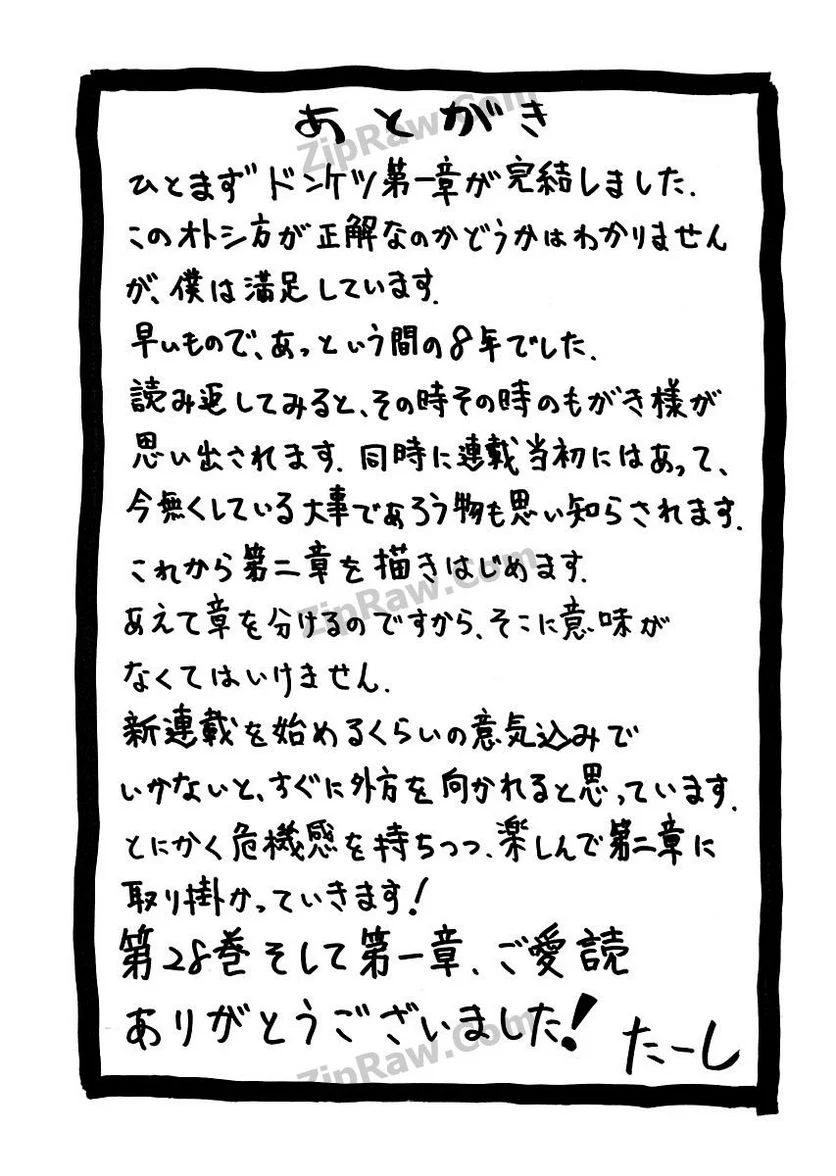 あとがき
ひとまずドンケツ第一章が完結しました.
このオトシ方が正解なのかどうかはわかりません
が、僕は満足しています.
早いもので、あっという間の8年でした.
読み返してみると、その時その時のもがき様が
思い出されます. 同時に連載当初にはあって、
今無くしている大事であろう物も思い知らされます.
これから第二章を描きはじめます.
あえて章を分けるのですから、そこに意味が
なくてはいけません.
新連載を始めるくらいの意気込みで
いかないと、すぐに外方を向かれると思っています.
とにかく危機感を持ちつつ、楽しんで第二章に
取り掛かっていきます!
第28巻そして第一章、ご愛読
ありがとうございました!
たーし
ZipRaw.Com
ZipRaw.Com
ZipRaw.Com